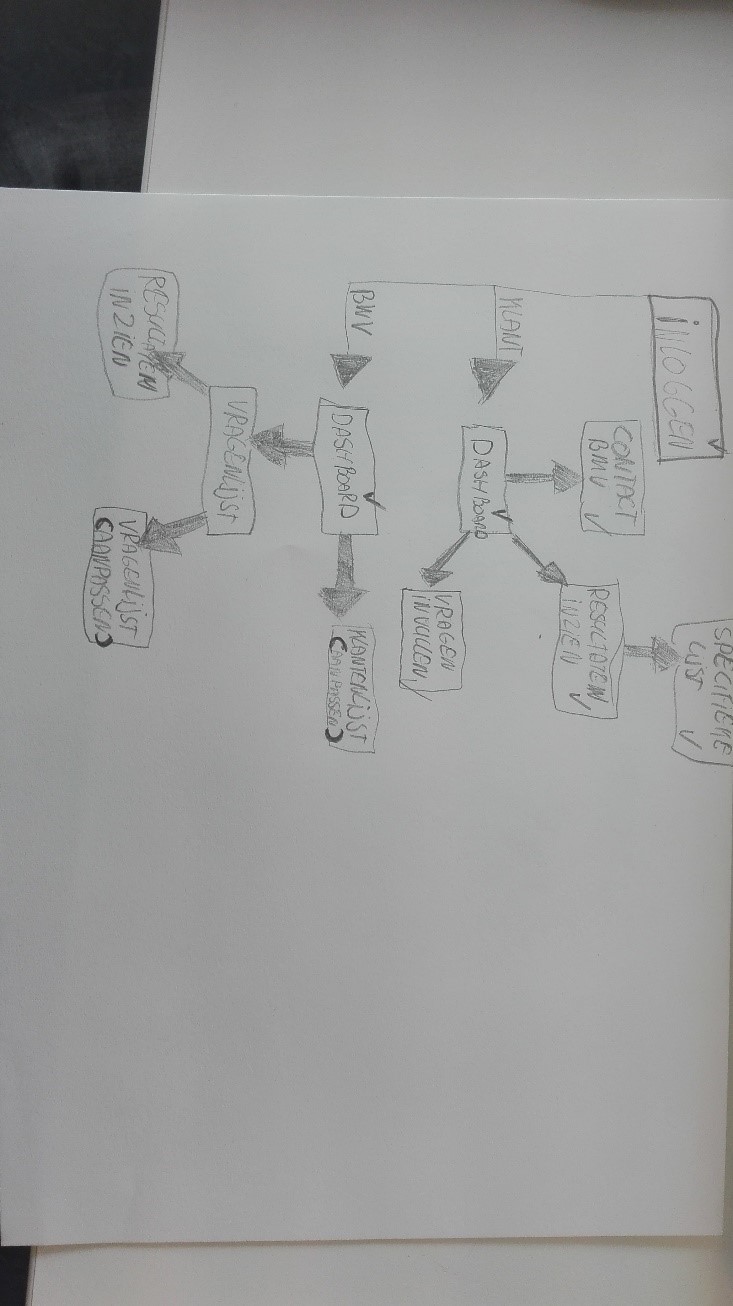 iNLOGGEN
SPECIFIEKE
LIJST
CONTACT
BMV
RESULTATEN
iNZIEN
KLANT
DASHBOARD
VRAGEN
iNVULLEN
BWV
DASHBOARD
KLANTENLijST
(AANPASSEN)
VRAGENLijST
RESULTATEN
iNZIEN
VRAGENLijST
(AANPASSEN)